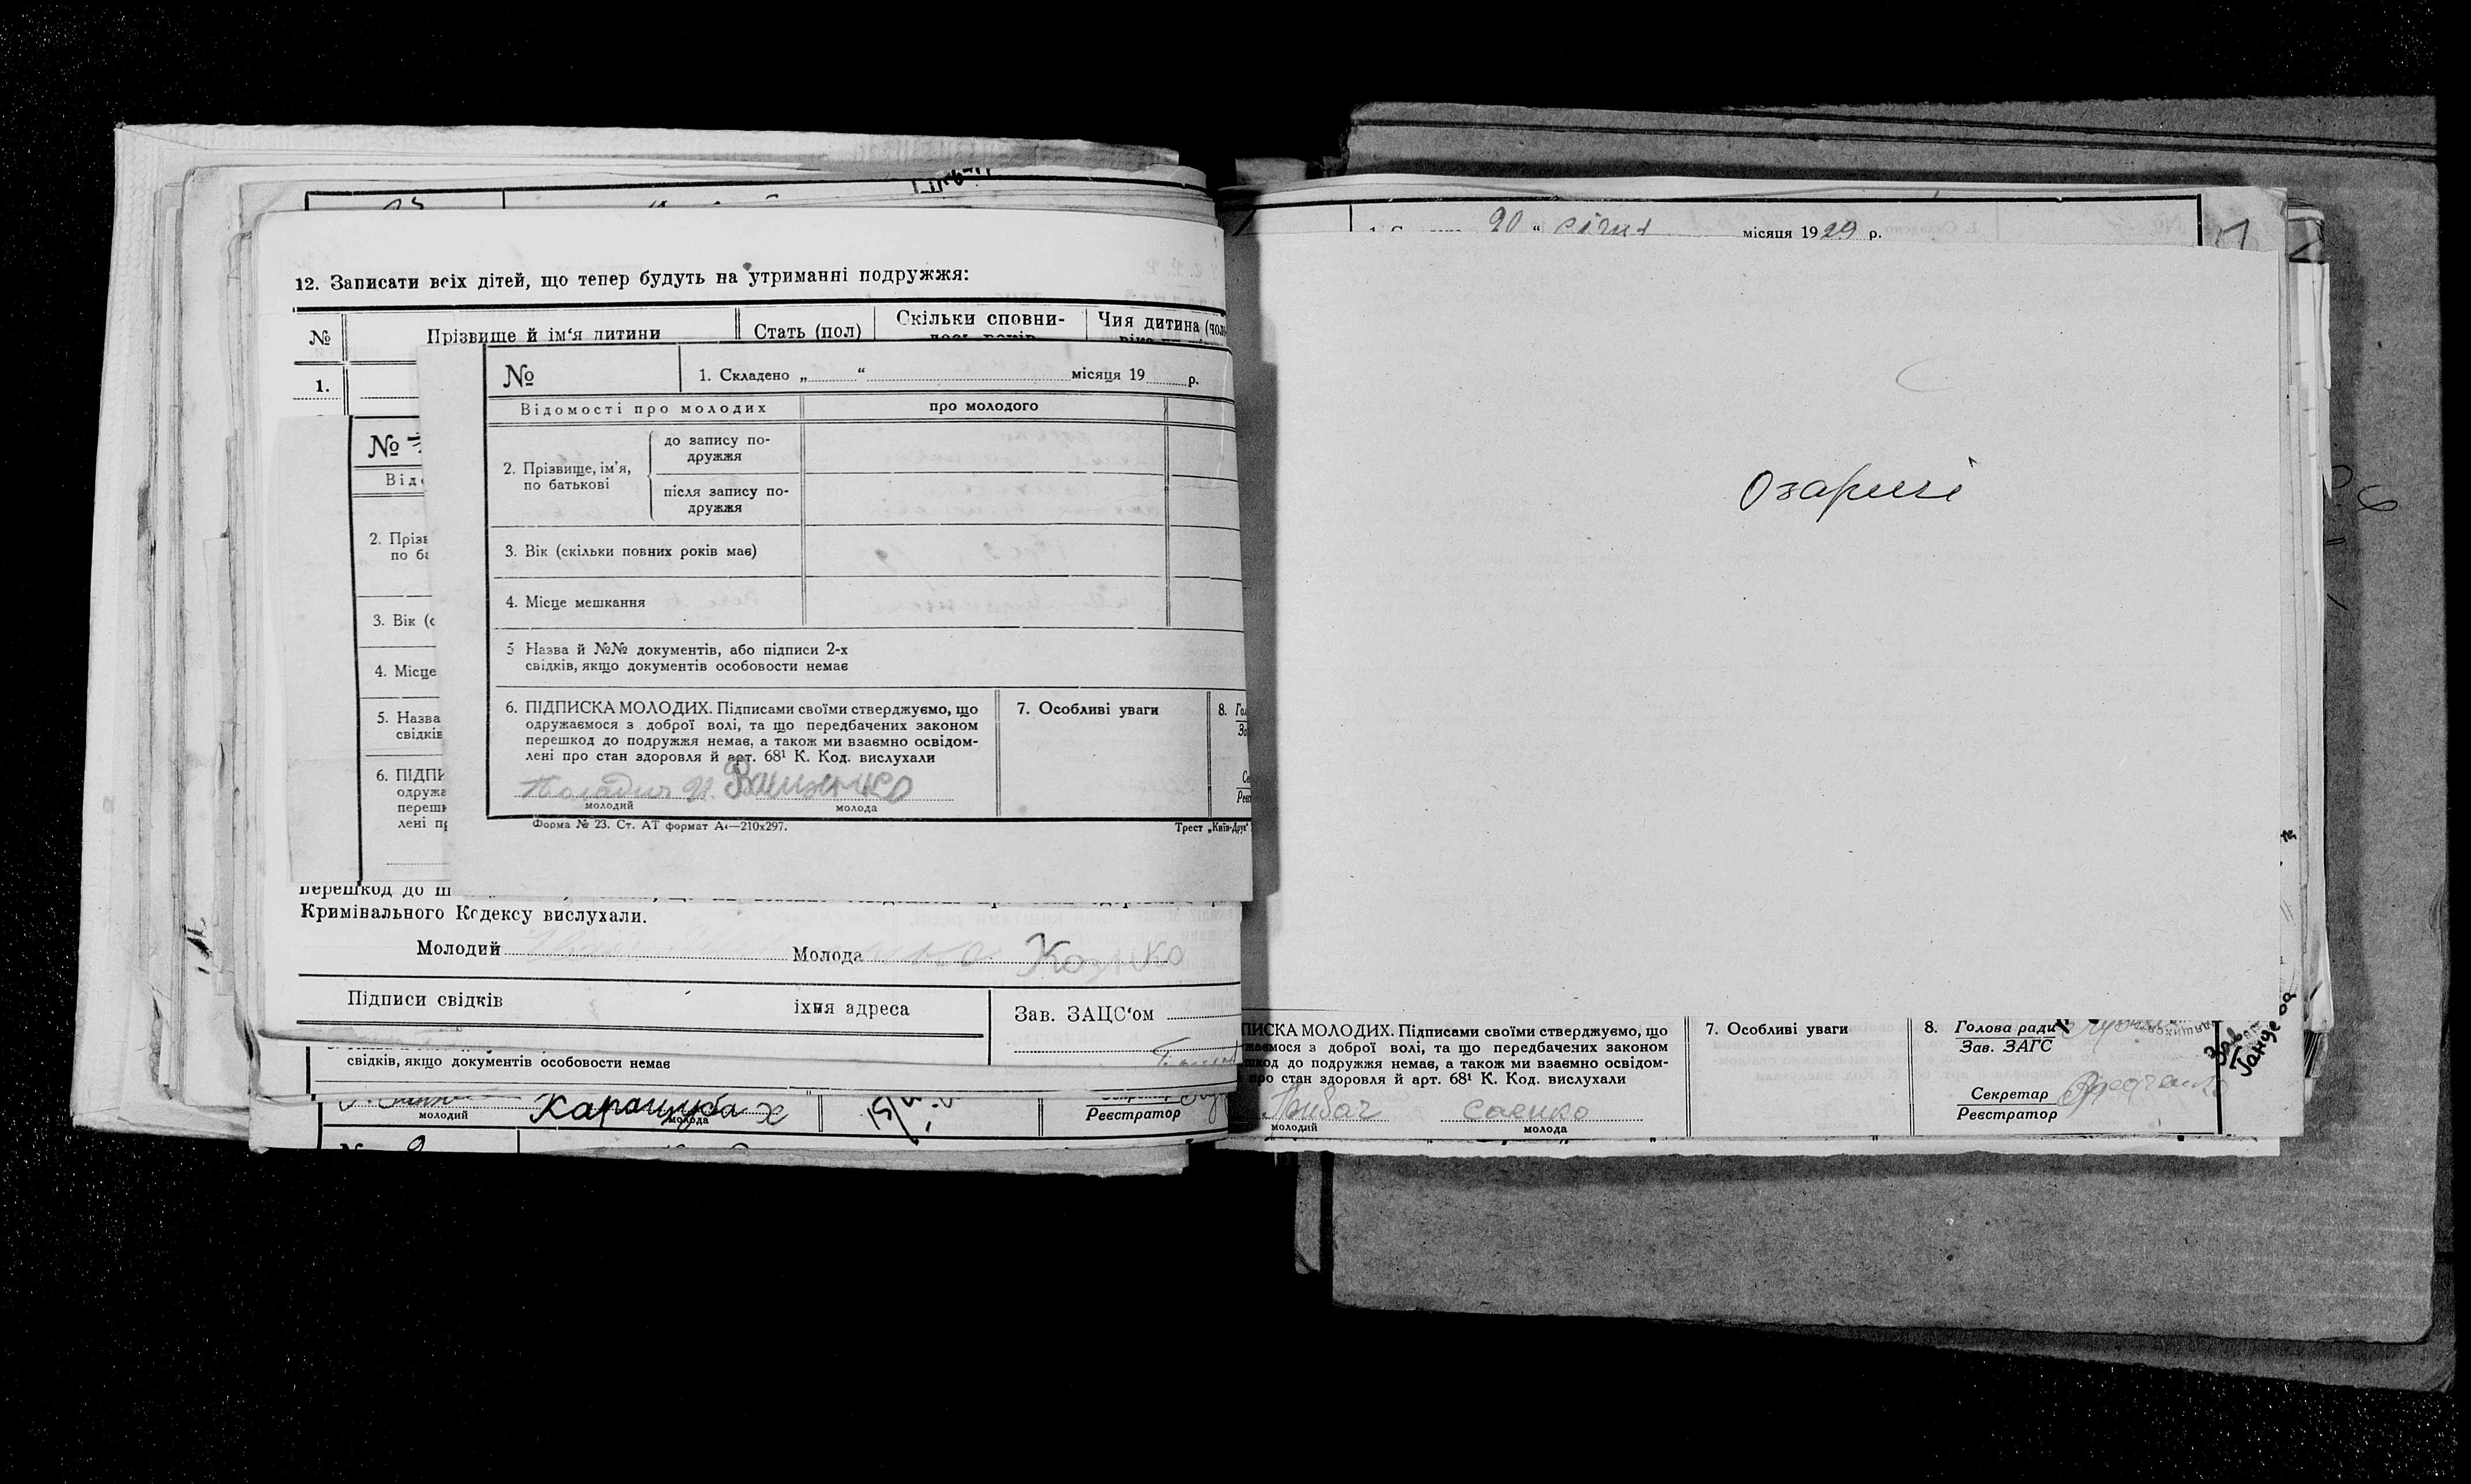 12. Записати всіх дітей, що тепер будуть на утриманні подружжя:
№ Прізвище й ім‘я дитини Стать (пол) Скільки сповни- Чия дитина (чол
1.
№ 1. Складено „ “ місяця 19 р.
Відомості про молодих про молодого
2. Прізвище, ім’я, по батькові
до запису по-
дружжя
після запису по-
дружжя
3. Вік (скільки повних років має)
4. Місце мешкання
5 Назва й №№ документів, або підписи 2-х
свідків, якщо документів особовости немає
6. ПІДПИСКА МОЛОДИХ. Підписами своїми стверджуємо, що
одружаємося з доброї волі, та що передбачених законом
перешкод до подружжя немає, а також ми взаємно освідом-
лені про стан здоровля й арт. 68¹ К. Код. вислухали
молодий молода
7. Особливі уваги
8.
Форма № 23. Ст. АТ формат А4—210х297.
Трест „Київ-Друк“
№
Від
2. Прізв
по ба
3. Вік (с
4. Місце
5. Назва
свідків
6. ПІДПИ
одружа
переш
лені пр
перешкод до
Кримінального Кодексу вислухали.
Молодий Молода
Підписи свідків їхня адреса Зав. ЗАЦС‘ом
свідків, якщо документів особовости немає
Каращуба х
молодий молода
Реєстратор
20 “ січня місяця 1929 р.
Озаричі
ПИСКА МОЛОДИХ. Підписами своїми стверджуємо, що
жаємося з доброї волі, та що передбачених законом
шкод до подружжя немає, а також ми взаємно освідом-
про стан здоровля й арт. 68¹ К. Код. вислухали
саенко
молодий молода
7. Особливі уваги
8. Голова ради
Зав. ЗАГС
Секретар
Реєстратор
Зав